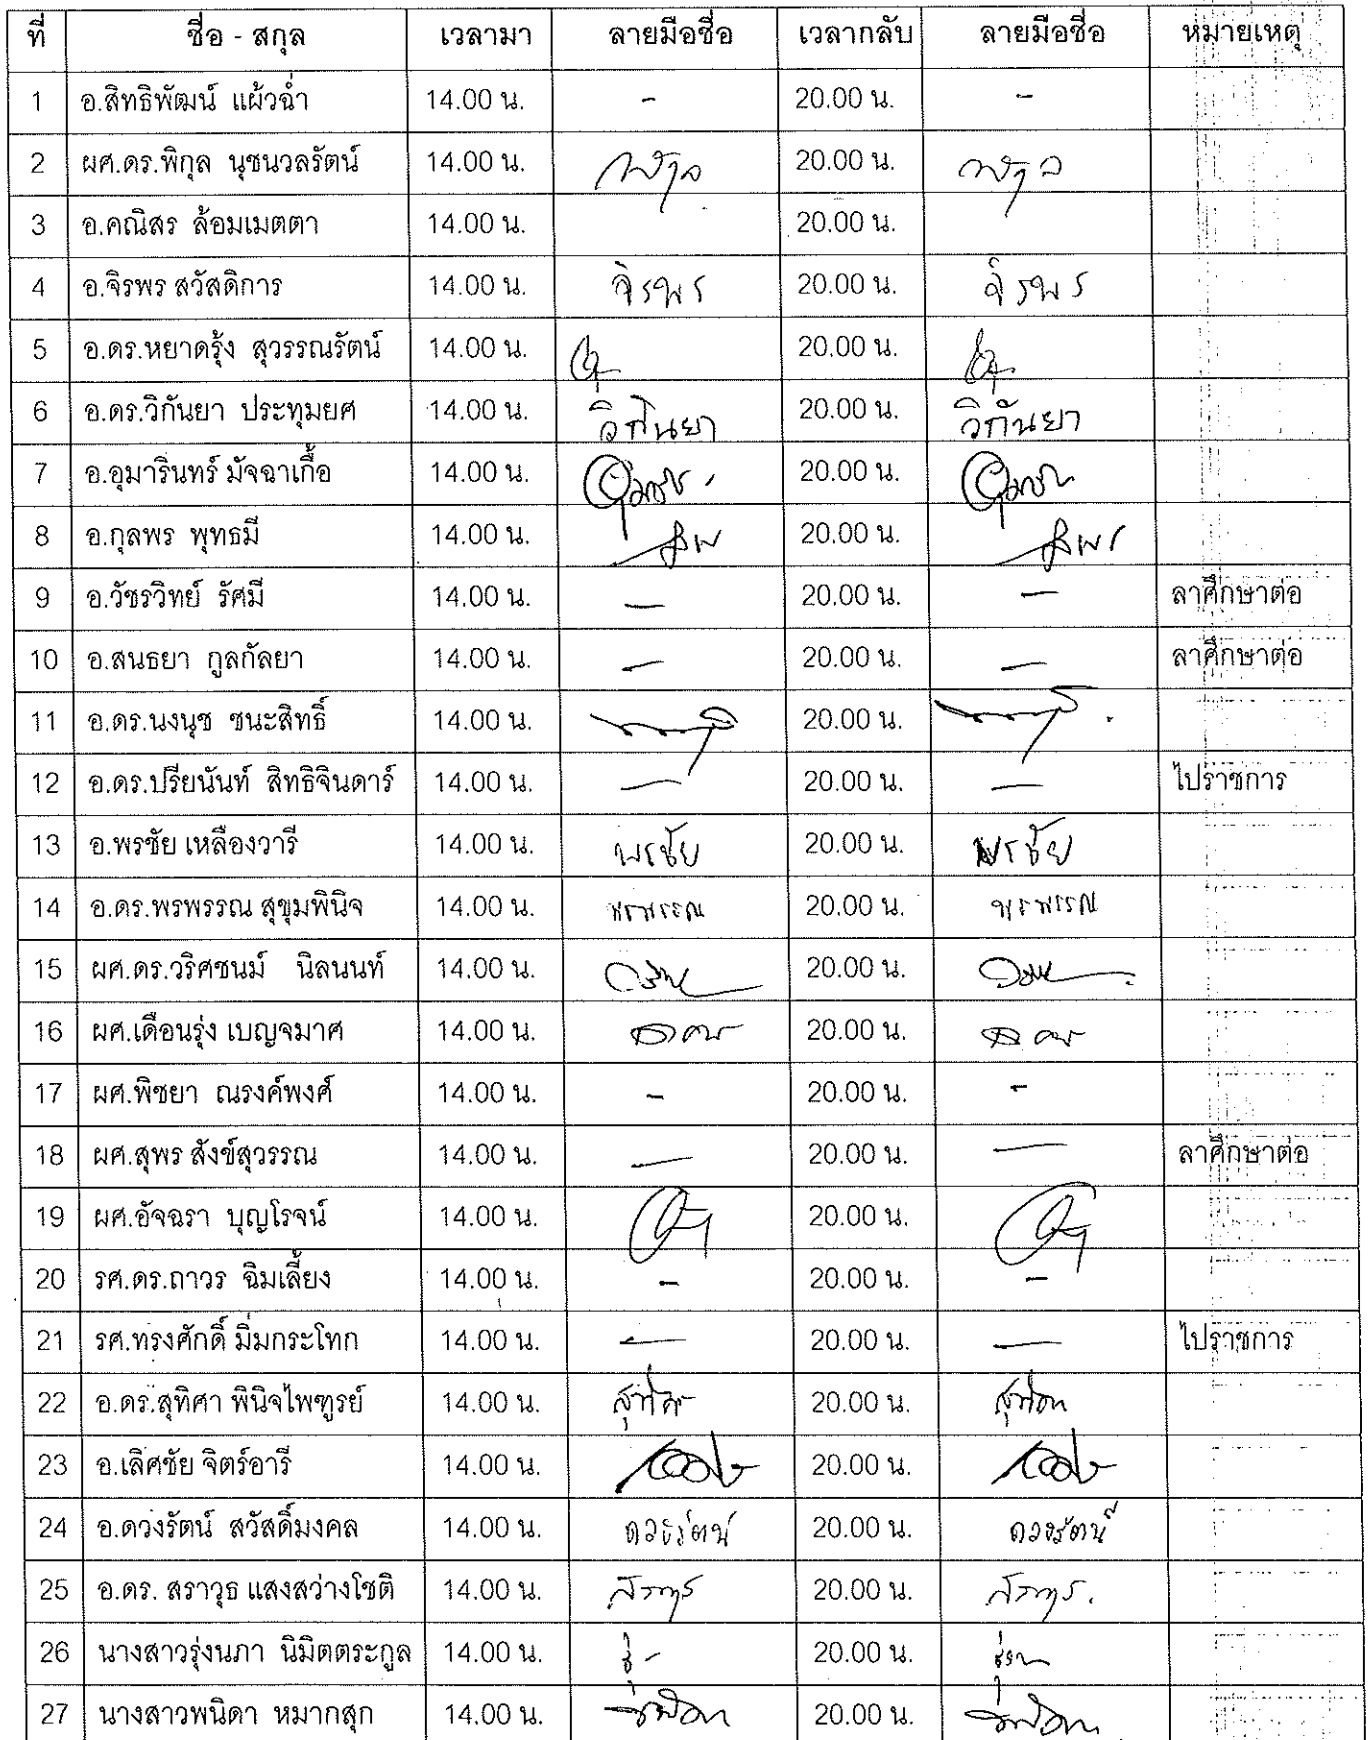 ที่ ชื่อ - สกุล เวลามา ลายมือชื่อ เวลากลับ ลายมือชื่อ หมายเหตุ
1 อ.สิทธิพัฒน์ แผ้วฉ่ำ 14.00 น. - 20.00 น. -
2 ผศ.ดร.พิกุล นุชนวลรัตน์ 14.00 น. พิกุล 20.00 น. พิกุล
3 อ.คณิสร ล้อมเมตตา 14.00 น. 20.00 น.
4 อ.จิรพร สวัสดิการ 14.00 น. จิรพร 20.00 น. จิรพร
5 อ.ดร.หยาดรุ้ง สุวรรณรัตน์ 14.00 น. 20.00 น.
6 อ.ดร.วิกันยา ประทุมยศ 14.00 น. วิกันยา 20.00 น. วิกันยา
7 อ.อุมารินทร์ มัจฉาเกื้อ 14.00 น. 20.00 น.
8 อ.กุลพร พุทธมี 14.00 น. 20.00 น.
9 อ.วัชรวิทย์ รัศมี 14.00 น. - 20.00 น. - ลาศึกษาต่อ
10 อ.สนธยา กูลกัลยา 14.00 น. - 20.00 น. - ลาศึกษาต่อ
11 อ.ดร.นงนุช ชนะสิทธิ์ 14.00 น. 20.00 น.
12 อ.ดร.ปรียนันท์ สิทธิจินดาร์ 14.00 น. - 20.00 น. - ไปราชการ
13 อ.พรชัย เหลืองวารี 14.00 น. พรชัย 20.00 น. พรชัย
14 อ.ดร.พรพรรณ สุขุมพินิจ 14.00 น. พรพรรณ 20.00 น. พรพรรณ
15 ผศ.ดร.วริศชนม์ นิลนนท์ 14.00 น. 20.00 น.
16 ผศ.เดือนรุ่ง เบญจมาศ 14.00 น. 20.00 น.
17 ผศ.พิชยา ณรงค์พงศ์ 14.00 น. - 20.00 น. -
18 ผศ.สุพร สังข์สุวรรณ 14.00 น. - 20.00 น. - ลาศึกษาต่อ
19 ผศ.อัจฉรา บุญโรจน์ 14.00 น. 20.00 น.
20 รศ.ดร.ถาวร ฉิมเลี้ยง 14.00 น. - 20.00 น. -
21 รศ.ทรงศักดิ์ มิ่มกระโทก 14.00 น. - 20.00 น. - ไปราชการ
22 อ.ดร.สุทิศา พินิจไพฑูรย์ 14.00 น. สุทิศา 20.00 น. สุทิศา
23 อ.เลิศชัย จิตร์อารี 14.00 น. 20.00 น.
24 อ.ดวงรัตน์ สวัสดิ์มงคล 14.00 น. ดวงรัตน์ 20.00 น. ดวงรัตน์
25 อ.ดร. สราวุธ แสงสว่างโชติ 14.00 น. 20.00 น.
26 นางสาวรุ่งนภา นิมิตตระกูล 14.00 น. 20.00 น.
27 นางสาวพนิดา หมากสุก 14.00 น. 20.00 น.